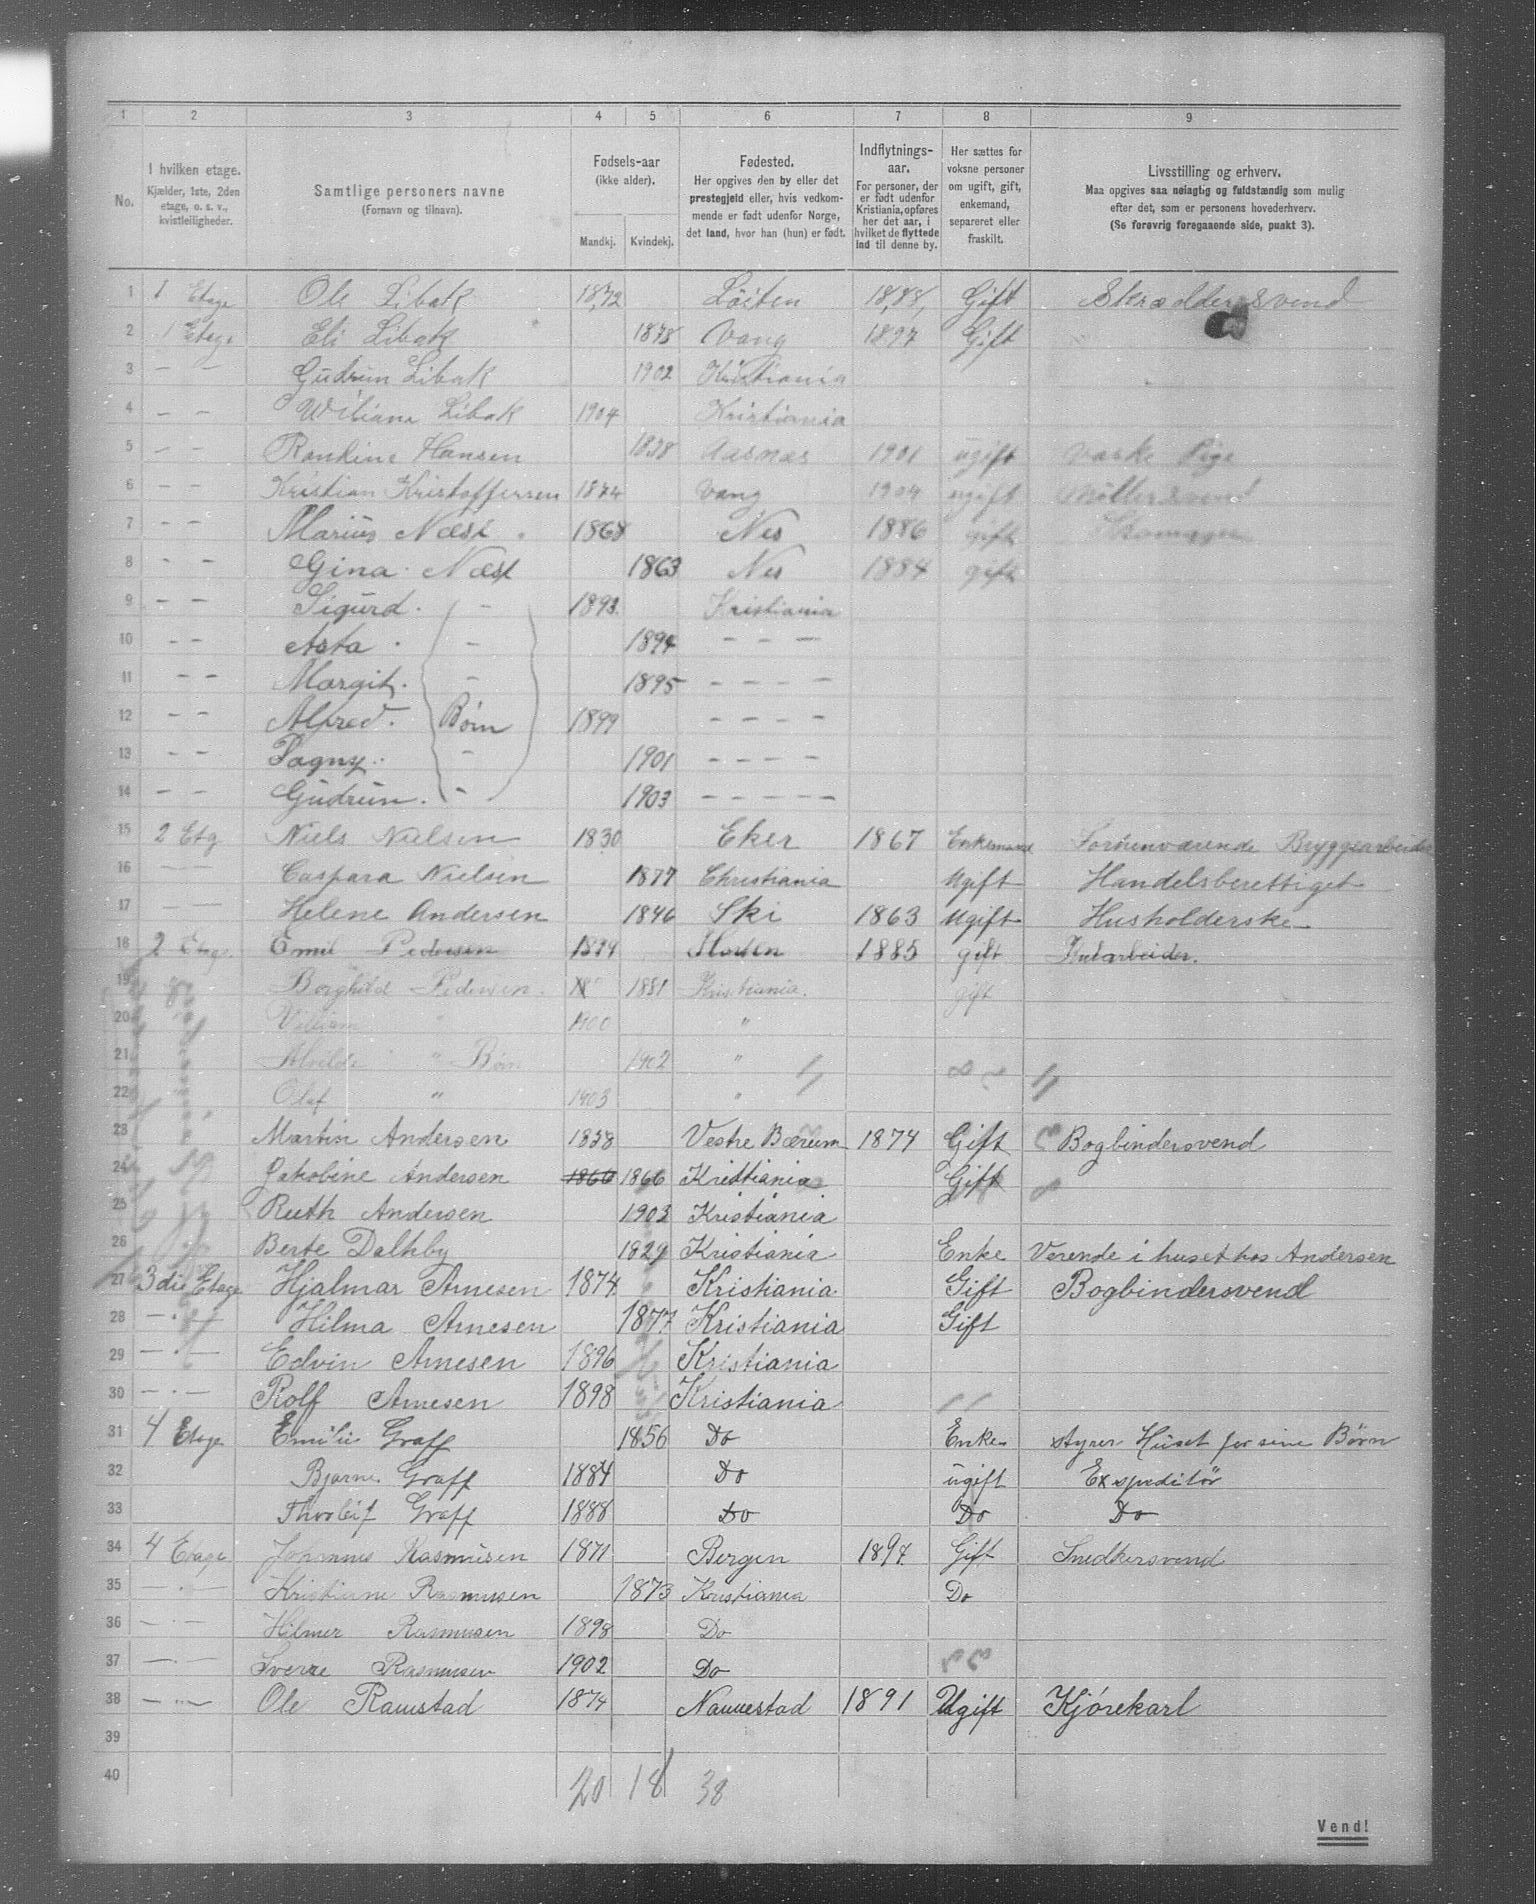 1 2 3 4 5 6 7 8 9
No.
I hvilken etage.
Kjælder, 1ste, 2den
etage, o. s. v.,
kvistleiligheder.
Samtlige personers navne
(Fornavn og tilnavn).
Fødsels-aar
(ikke alder).
Mandkj. Kvindekj.
Fødested.
Her opgives den by eller det
prestegjeld eller, hvis vedkom-
mende er født udenfor Norge,
det land, hvor han (hun) er født.
Indflytnings-
aar.
For personer, der
er født udenfor
Kristiania, opføres
her det aar, i
hvilket de flyttede
ind til denne by.
Her sættes for
voksne personer
om ugift, gift,
enkemand,
separeret eller
fraskilt.
Livsstilling og erhverv.
Maa opgives saa nøiagtig og fuldstændig som mulig
efter det, som er personens hovederhverv.
(Se forøvrig foregaaende side, punkt 3).
1 1 Etage Ole Libak 1872 Löiten 1888 Gift Skræddersvend
2 1 Etage Eli Libak 1878 Vang 1897 Gift
3 — — Gudrun Libak 1902 Kristiania
4 — — Wiliam Libak 1904 Kristiania
5 — — Hansen Aasnæs 1901 ugift Vaske Pige
6 — — Kristian Kristoffersen 1874 Vang 1904 ugift Möllersvend
7 — — Marius Næst 1868 Nes 1886 gift Skomager
8 — — Gina Næst 1863 Nes 1884 gift
9 — — Sigurd — 1893 Kristiania
10 — — Asta — 1894 — — — —
11 — — Margit — 1895 — — — —
12 — — Alfred Børn 1899 — — — —
13 — — Dagny — 1901 — — — —
14 — — Gudrun — 1903 — — — —
15 2 Etg Niels Nielsen 1830 Eker 1867 Enkemand Bryggearbeider
16 — Caspara Nielsen 1877 Christiania Ugift Handelsberettiget
17 — — Helene Andersen 1846 Ski 1863 Ugift Husholderske
18 2 Etage Emil Pedersen 1885 gift
19 Borghild Pedersen 1881 Kristiania. gift
20 William " 1900 "
21 " Børn 1902 "
22 Olaf " 1903 "
23 Martin Andersen 1858 Vestre Bærum 1874 Gift Bogbindersvend
24 Jakobine Andersen 1866 1866 Kristiania Gift
25 Ruth Andersen 1903 Kristiania
26 Berte Dalhby 1829 Kristiania Enke Verende i huset hos Andersen
27 3die Etage Hjalmar Arnesen 1874 Kristiania Gift Bogbindersvend
28 — · — Hilma Arnesen 1877 Kristiania Gift
29 — · — Edvin Arnesen 1896 Kristiania
30 — · — Rolf Arnesen 1898 Kristiania
31 4 Etage Emilie Graff 1856 Do Enke styrer Huset for sine Børn
32 Bjarne Graff 1884 Do ugift Expeditör
33 Thorleif Graff 1888 Do Do Do
34 4 Etage Johannes Rasmusen 1871 Bergen 1894 Gift Snedkersvend
35 — · — Kristiane Rasmusen 1873 Kristiania Do
36 — · — Hilmer Rasmusen 1898 Do
37 — · — Sverre Rasmusen 1902 Do
38 — · — Ole Ramstad 1874 Nannestad 1891 Ugift Kjørekarl
39
40
20 18 38
Vend!